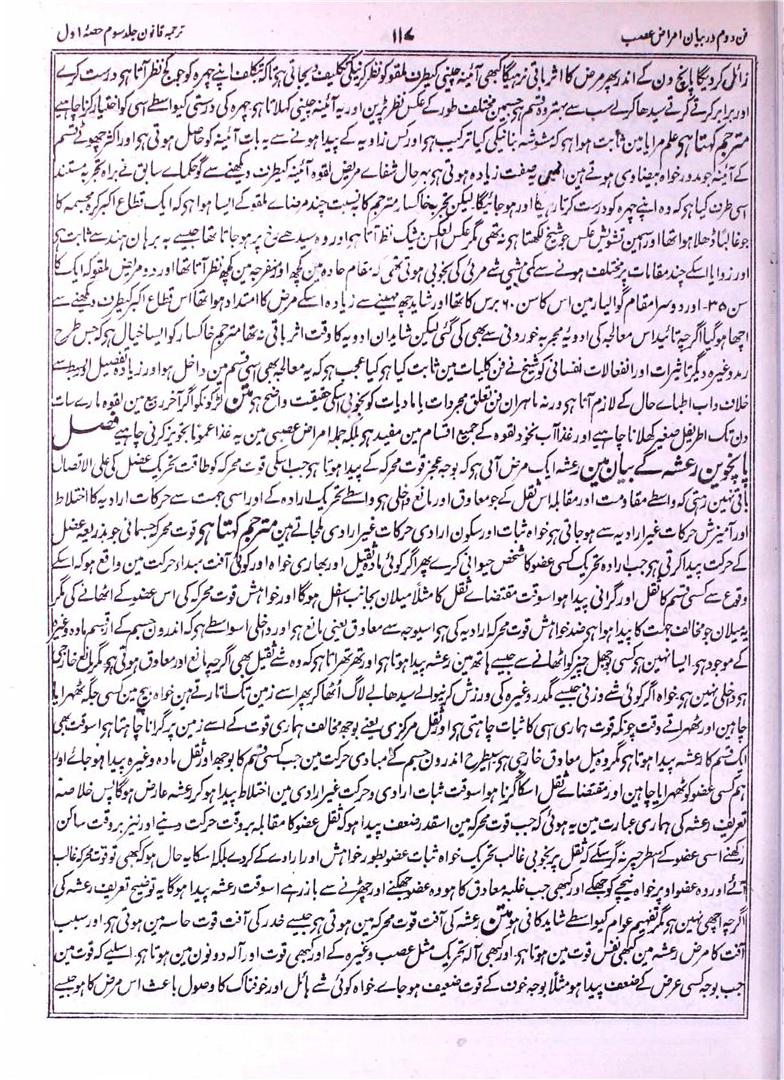 فن دوم در بیان امراض عصب ۱۱۷ ترجمہ قانون جلد سوم حصۂ اول
زائل کردیگا پانچ دن کے اندر پھر مرض کا اثر باقی نرہیگا کبھی آئینہ چینی کیطرف ملقو کو نظر کرنیکی تکلیف دیجاتی ہے تاکہ بتکلف اپنے چہرہ کو جو کج نظر آتا ہے درست کرے
اور برابر کرتے کرتے سیدھا کرلے سب سے بہتر وہ قسم ہے جسمین مختلف طور کے عکس نظر پڑین اور یہ آئینہ چینی کہلاتا ہے چہرہ کی درستی کیواسطے اسی کو اختیار کرنا چاہیے
مترجم کہتا ہے علم مرایا مین ثابت ہوا ہے کہ شیشہ بنانیکی کیا ترکیب ہے اور کس زاویہ کے پیدا ہونے سے یہ بات آئینہ کو حاصل ہوتی ہے اور اکثر چھوٹے قسم
کے آئینہ جو مدور خواہ بیضاوی ہوتے ہین انھین یہ صفت زیادہ ہوتی ہے بہرحال شفاے مریض لقوہ آئینہ کیطرف دیکھنے سے گو حکماے سابق نے براہ تجربہ مستند
اسی طرف کیا ہے کہ وہ اپنے چہرہ کو درست کرتا رہیگا اور ہوجائیگا لیکن تجربہ خاکسار مترجم کا نسبت چند مرضاے ملقو کے ایسا ہوا ہے کہ ایک قطاع اکبر کرہ مجسمہ کا
جو غالباً ڈھلا ہوا تھا اور اسمین تفتیش عکس جو شیخ لکھتا ہے نہ تھی مگر عکس العکس بیشک نظر آتا ہے اور وہ سیدھے رخ پر ہو جاتا تھا جیسے یہ برہان ہندسے ثابت ہے
اور زوایا اسکے چند مقامات پر مختلف ہونے سے کمی بیشی شے مرئی کی بخوبی ہوتی تھی کہ مقام حادہ مین کچھ اور منفرجہ مین کچھ نظر آتا تھا اور دو مریض لقوہ کہ ایک کا
سن ۳۵- اور دوسرا مقام گوالیار مین اس کا سن ۶۰ برس کا تھا اور شاید چھ مہینے سے زیادہ اسکے مرض کا امتداد ہوا تھا اس قطاع اکبر کیطرف دیکھنے سے
اچھا ہو گیا اگرچہ تائید اس معالجہ کی ادویہ مجربہ خوردنی سے بھی کی گئی لیکن شاید ان ادویہ کا وقت اثر باقی نہ تھا مترجم خاکسار کو ایسا خیال ہے کہ جس طرح
رمد وغیرہ دیگر تاثیرات اور انفعالات نفسانی کو شیخ نے فن کلیات مین ثابت کیا ہے کیا عجب ہے کہ یہ معالجہ بھی اسی قسم مین داخل ہو اور زیادہ تفصیل اور بسط سے
خلاف داب اطباے حال کے لازم آتا ہے ورنہ ماہران فن تعلق مجردات با مادیات کو بخوبی اسکی حقیقت واضح ہے متن لڑکونکو اگر آخر ربیع مین لقوہ مارے سات
دن تک اطریفل صغیر کھلانا چاہیے اور غذا آب نخود لقوہ کے جمیع اقسام مین مفید ہے بلکہ جملہ امراض عصبی مین یہ غذا عموماً تجویز کرنی چاہیے فصل
پانچوین رعشہ کے بیان مین رعشہ ایک مرض آلی ہے کہ بوجہ عجز قوت محرکہ کے پیدا ہوتا ہے جب اسکی قوت محرکہ کو طاقت تحریک عضل کی علی الاتصال
باقی نہین رہتی کہ واسطے مقاومت اور مقابلہ اس ثقل کے جو معاوق اور مانع داخلی ہے واسطے تحریک ارادہ کے اور اسی جہت سے حرکات ارادیہ کا اختلاط
اور آمیزش حرکات غیر ارادیہ سے ہوجاتی ہے خواہ ثبات اور سکون ارادی حرکات غیر ارادی ملجاتے ہین مترجم کہتا ہے قوت محرکہ جسمانی جو بذریعہ عضل
کے حرکت پیدا کرتی ہے جب ارادہ تحریک کسی عضو کا شخص حیوانی کرے پھر اگر کوئی مادہ ثقیل اور بھاری خواہ اور کوئی آفت مبداء حرکت مین واقع ہو کہ اسکے
وقوع سے کسی قسم کا ثقل اور گرانی پیدا ہو اسوقت مقتضاے ثقل کا مثلاً میلان بجانب اسفل ہوگا اور خواہش قوت محرکہ کی اس عضو کے اٹھانے کی مگر
یہ میلان جو مخالف جہت کا پیدا ہوا ہے ضد خواہش قوت محرکہ ارادیہ کی ہے اسیوجہ سے معاوق یعنی مانع ہے اور داخلی اسواسطے ہے کہ اندرون جسم کے از قسم مادہ وغیرہ
کے موجود ہے۔ ایسا نہین ہے کسی بوجھل چیز کو اٹھانے سے جیسے ہاتھ مین رعشہ پیدا ہوتا ہے اور تھرتھراتا ہے کہ وہ شے ثقیل بھی اگرچہ مانع اور معاوق ہوتی ہے مگر مانع خارجی
ہے داخلی نہین ہے۔ خواہ اگر کوئی شے وزنی جیسے گدر وغیرہ کی ورزش کرنیوالے سیدھا بے لاگ اٹھا کر پھر اسے زمین تک اتارتے ہین خواہ بیچ مین کسی جگہ ٹھہرایا
چاہین اور ٹھہراتے وقت چونکہ قوت ہماری اسی کا ثبات چاہتی ہے اور ثقل مرکزی یعنے بوجھ مخالف ہماری قوت کے اسے زمین پر گرانا چاہتا ہے اسوقت بھی
ایک قسم کا رعشہ پیدا ہوتا ہے مگر وہ میل معاوق خارجی ہے اسیطرح اندرون جسم کے مبادی حرکت مین جب کسی قسم کا بوجھ اور ثقل مادہ وغیرہ پیدا ہوجاے اور
ہم کسی عضو کو ٹھہرایا چاہین اور مقتضاے ثقل اسکا گرنا ہو اسوقت ثبات ارادی و حرکت غیر ارادی مین اختلاط پیدا ہو کر رعشہ عارض ہوگا پس خلاصہ
تعریف رعشہ کی ہماری عبارت مین یہ ہوئی کہ جب قوت محرکہ مین اسقدر ضعف پیدا ہو کہ ثقل عضو کا مقابلہ بروقت حرکت دینے اور نیز بروقت ساکن
رکھنے اسی عضو کے اسطرح پر نہ کر سکے کہ ثقل پر بخوبی غالب تحریک خواہ ثبات عضو بطور خواہش اور ارادے کے کردے بلکہ اسکا یہ حال ہو کہ کبھی تو قوت محرکہ غالب
آئے اور وہ عضو اوپر خواہ نیچے کو جھکے اور کبھی جب غلبہ معاوق کا ہو وہ عضو جھکنے اور چھڑنے سے باز رہے اسوقت رعشہ پیدا ہوگا یہ توضیح تعریف رعشہ کی
اگرچہ اچھی نہین ہے مگر تفہیم عوام کیواسطے شاید کافی ہو متن رعشہ کی آفت قوت محرکہ مین ہوتی ہے جیسے خدر کی آفت قوت حاسہ مین ہوتی ہے۔ اور سبب
آفت کا مرض رعشہ مین کبھی نفس قوت مین ہوتا ہے۔ اور کبھی آلہ تحریک مثل عصب وغیرہ کے اور کبھی قوت اور آلہ دونون مین ہوتا ہے۔ اسلیے کہ قوت مین
جب بوجہ کسی عرض کے ضعف پیدا ہو مثلاً بوجہ خون کے قوت ضعیف ہوجاے۔ خواہ کوئی شے ہائل اور خوفناک کا وصول باعث اس مرض کا ہو جیسے